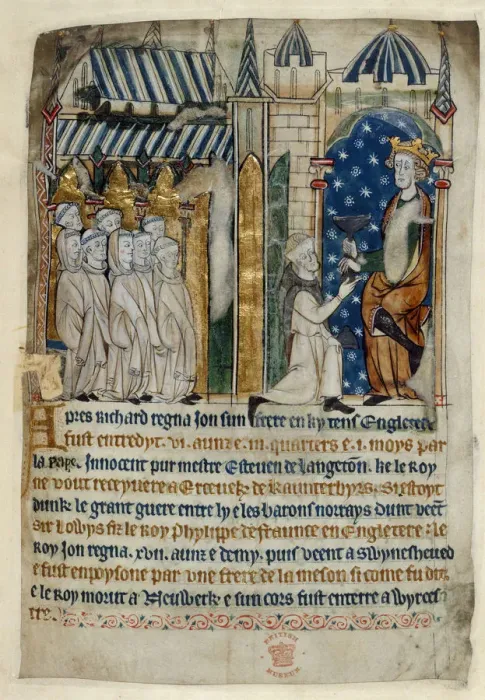 Apres Richard regna Jon sun frere en ky tens Engletere
fust entredyt . vi . aunz e . iii . quarters e . i . moys par
la Pape . Innocent pur mestre Esteuen de Langeton . ke le Roy
ne vout receyuere a Erceuek de Kaunterbyrs . Si estoyt
dunk le grant guere entre ly e les barons norrays dunt veent
Sir Lowys fiz le Roy Phylipe de fraunce en Engletere : le
Roy Jon regna . xvii . aunz e demy . puis veent a Swynesheued
e fust enpoysone par vne frere de la meson si come fu dit
e le Roy morut a Neuwerk e sun cors fust enterre a Wyrces
tre .
BRITISH
MUSEUM